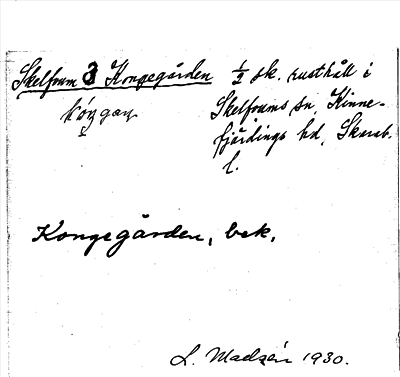 Skelfrum 3 Kongegården ½ sk. rusthåll i
Skelfrums sn, Kinne-
fjärdings hd, Skarab.
l.
Kongegården, bek.
L. Madsén 1930.